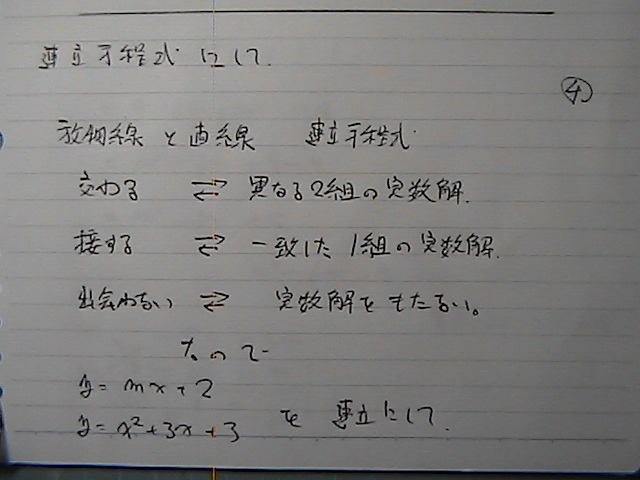 連立方程式にして
④
放物線と直線 連立方程式
交わる ⇄ 異なる2組の実数解.
接する ⇄ 一致した1組の実数解.
出会わない ⇄ 実数解をもたない。
なので
y = mx + 2
y = x² + 3x + 3 を連立にして.